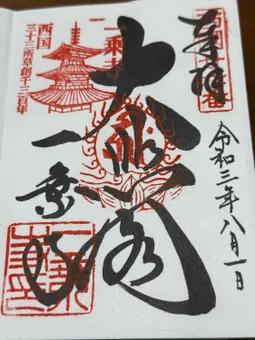 奉拝
令和三年八月一日
大悲閣
一乗寺
西国
三十三所草創千三百年
一乗寺